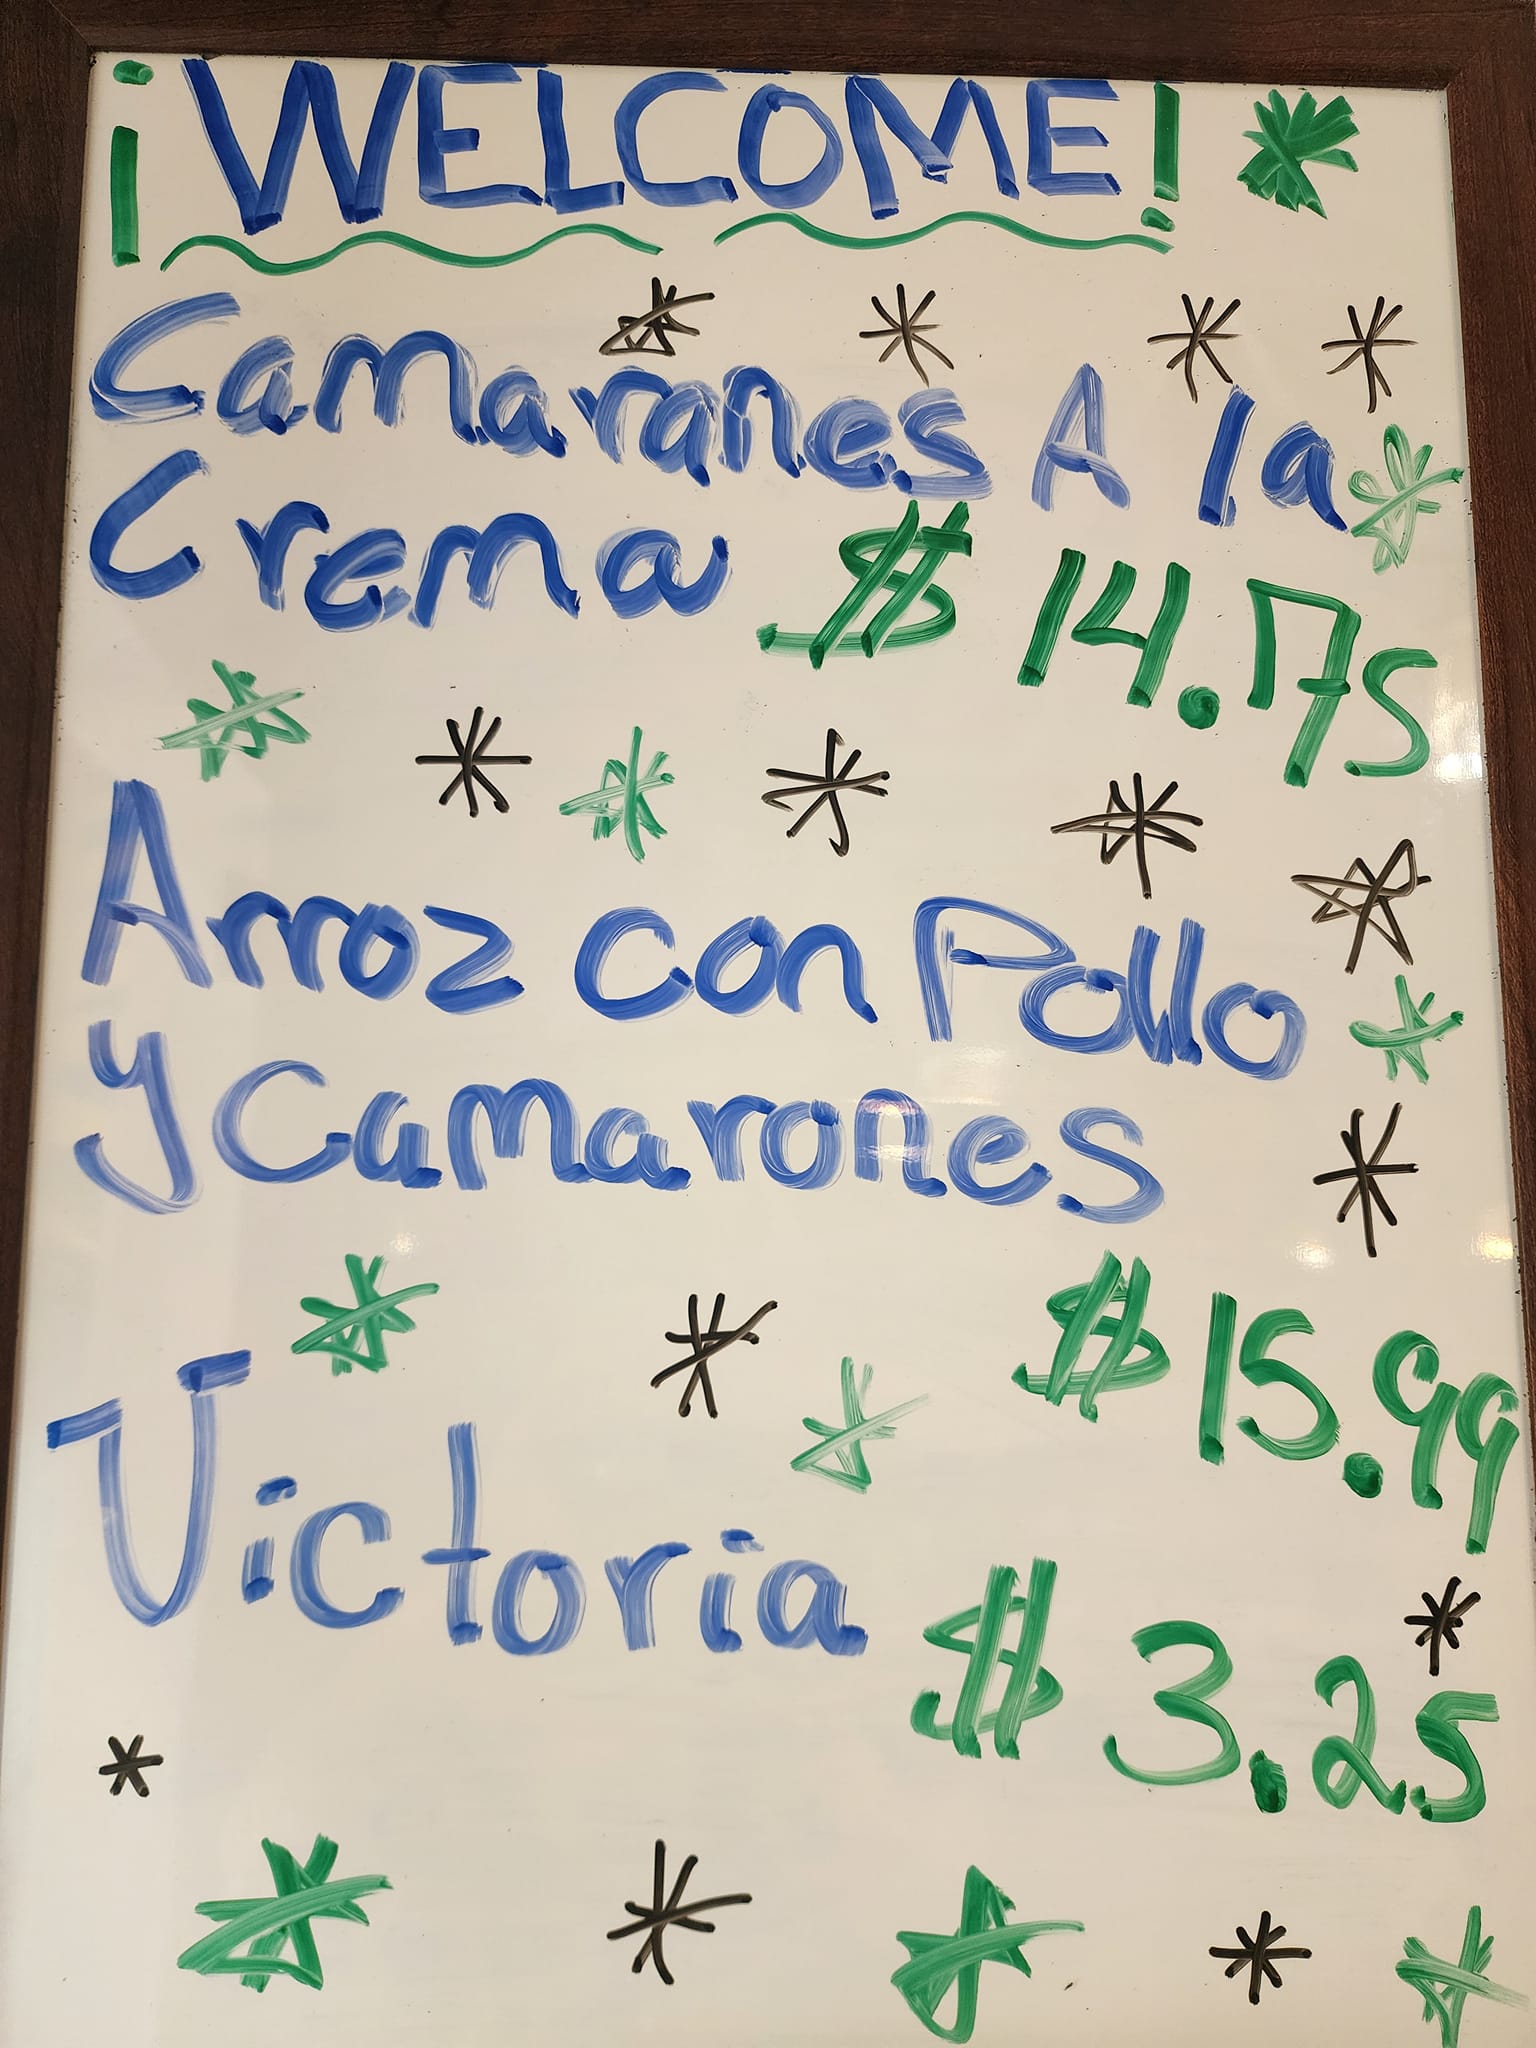 ¡WELCOME!
Camaranes A la
Crema $ 14.75
Arroz con Pollo
y Camarones
$ 15.99
Victoria
$ 3.25